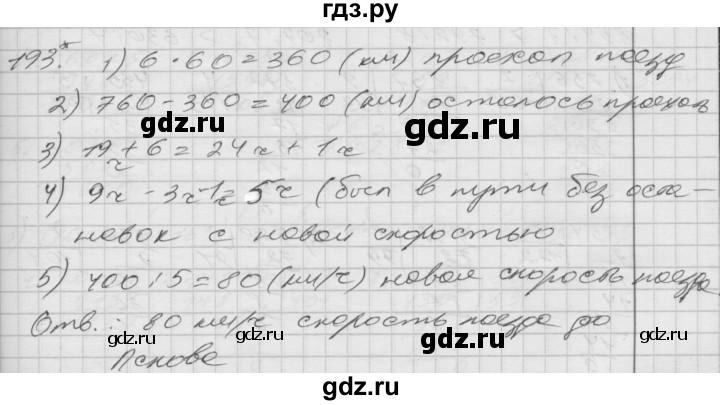 гдз.ру
193.* 1) 6 · 60 = 360 (км) проехал поезд
2) 760 - 360 = 400 (км) осталось проехать
gdz.ru gdz.ru
3) 19ч + 6 = 24ч + 1ч
4) 9ч - 3ч - 1ч = 5ч (был в пути без оста-
новок с новой скоростью
5) 400 : 5 = 80 (км/ч) новая скорость поезда
Отв.: 80 км/ч скорость поезда до
gdz.ru gdz.ru
Пскова
gdz.ru